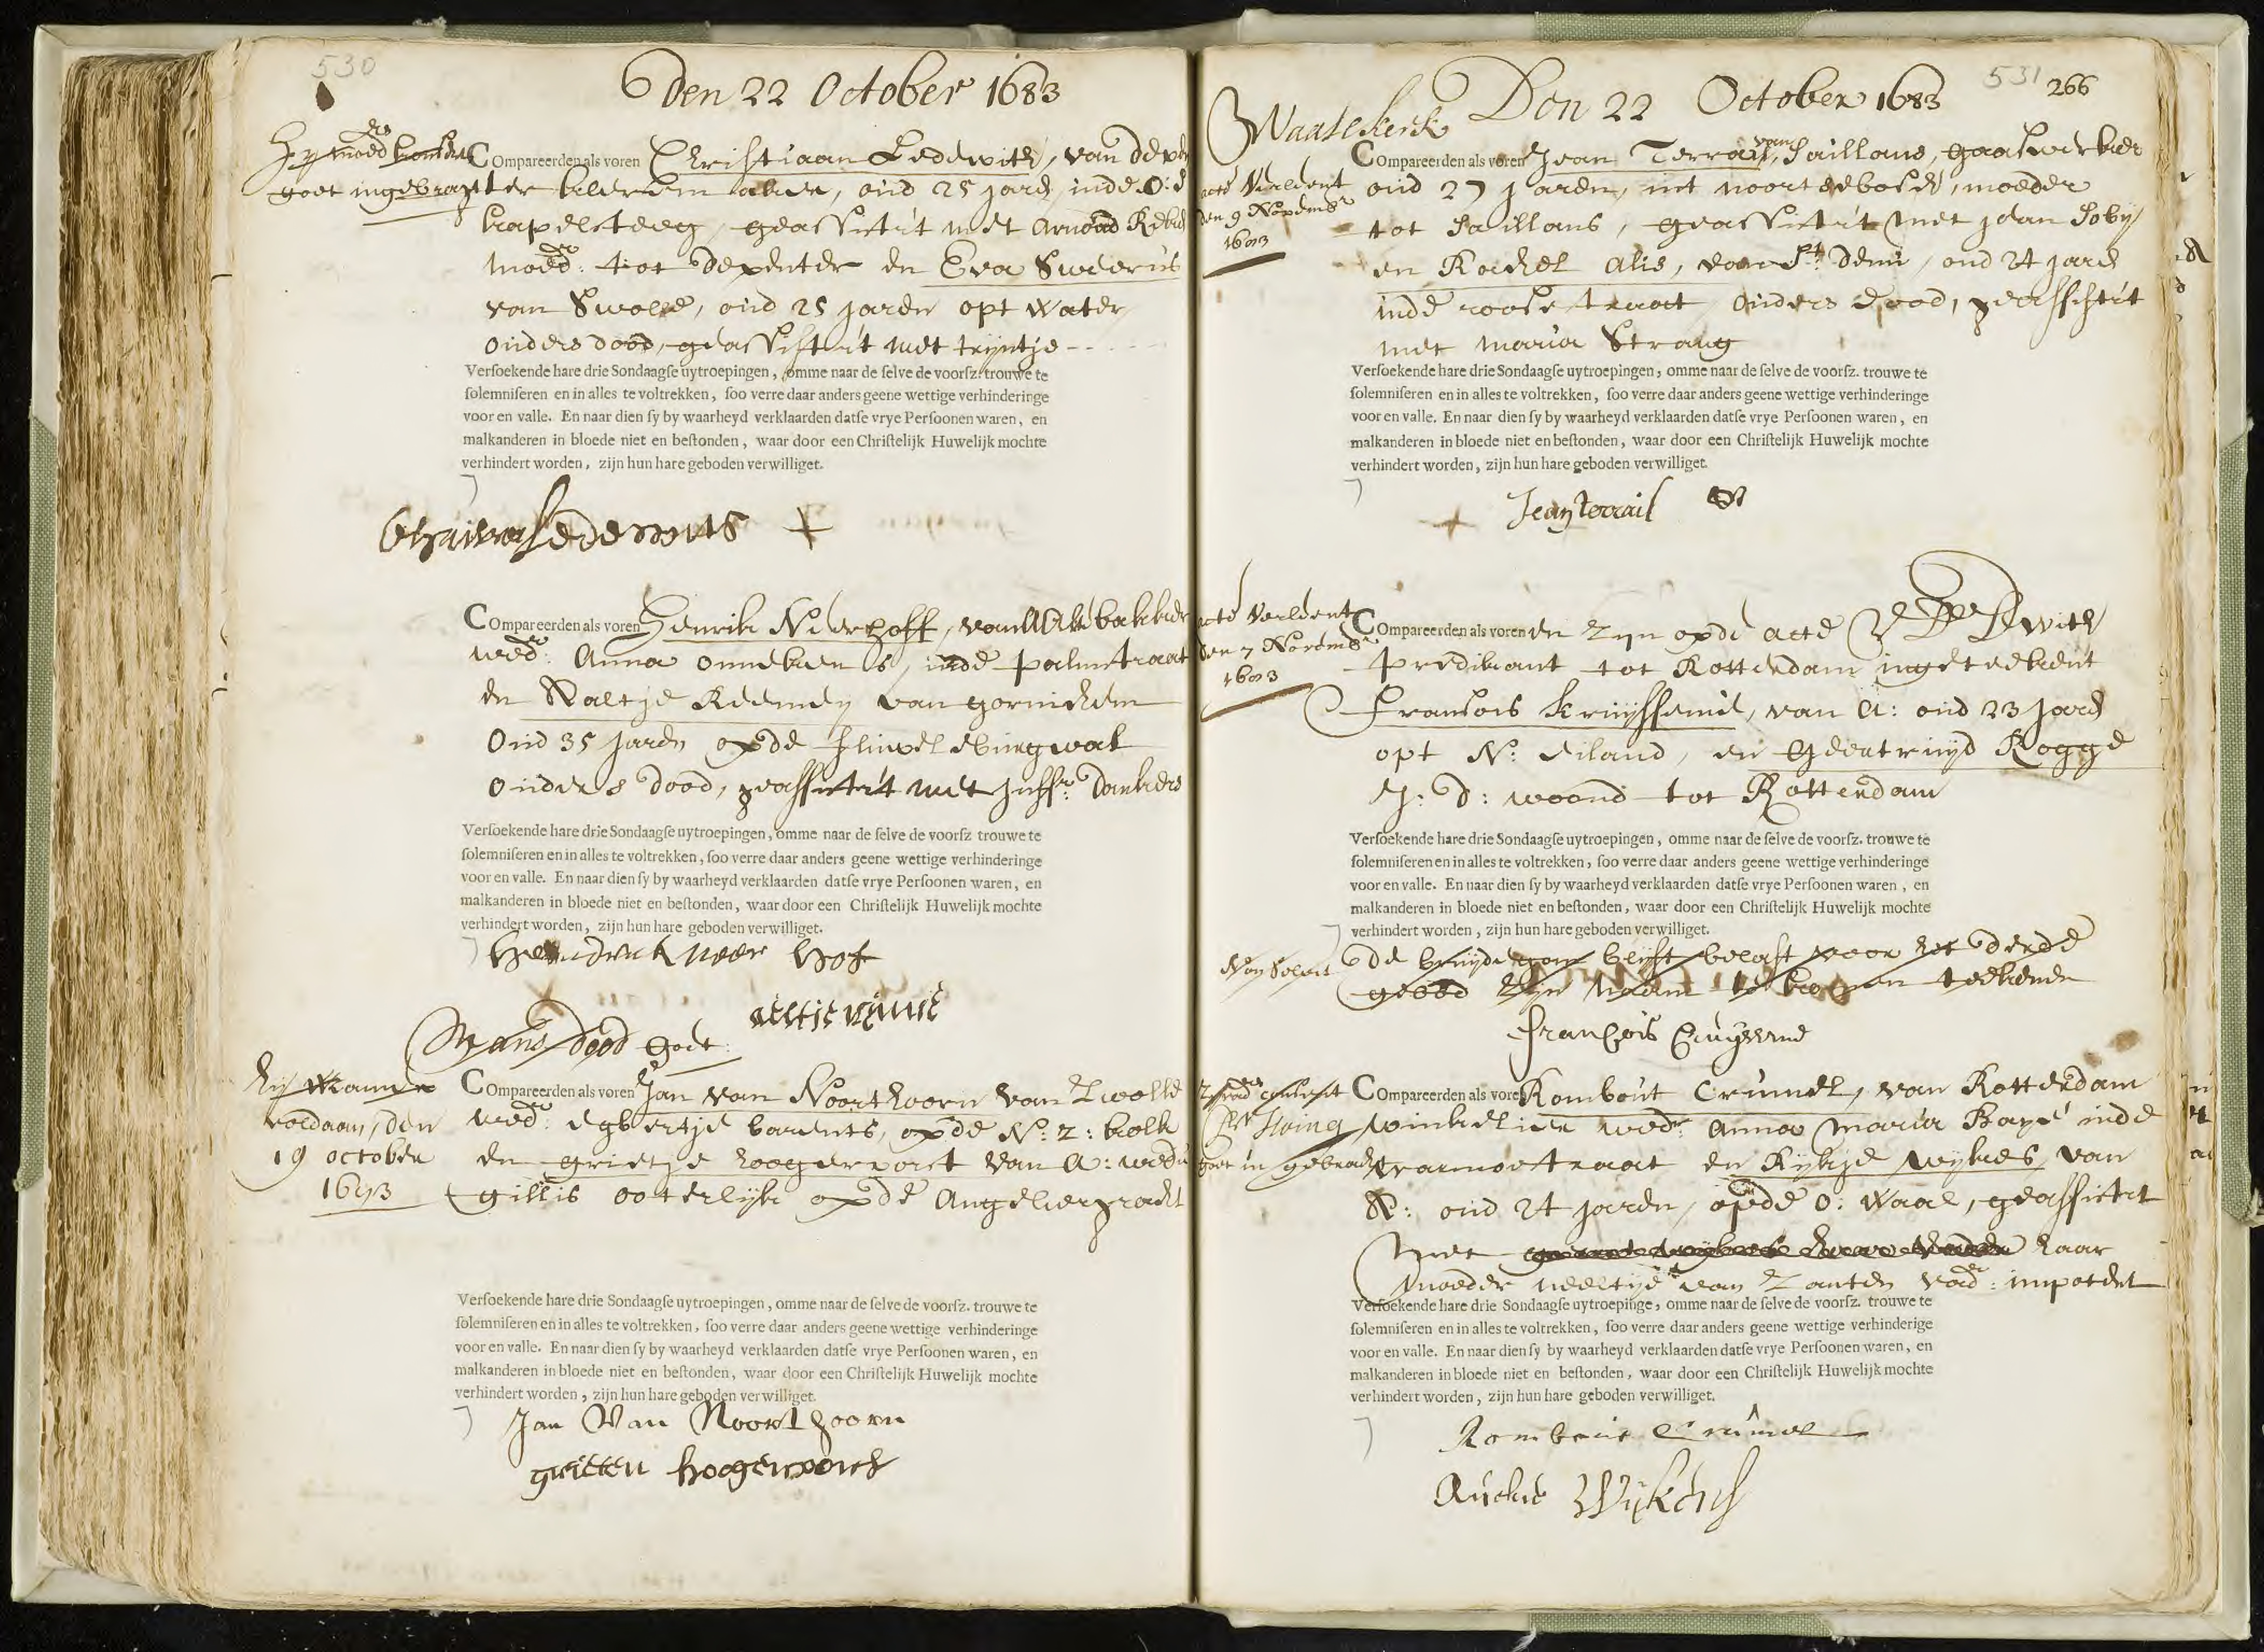 530
Den 22 October 1683
Compareerden als voren Christiaan Ledewith, van deven
goet ingebragt ter kleermaker, oud 25 jaren, inde O: Z
kapelsteeg, geassisteert met Arnoud
moedr: tot deventer en Eva Sweerus
van Swolle, oud 25 jaren opt water
ouders dood, geassisteert met trijntje
Versoekende hare drie Sondaagse uytroepingen, omme naar de selve de voorsz. trouwe te
solemniseren en in alles te voltrekken, soo verre daar anders geene wettige verhinderinge
voor en valle. En naar dien sy by waarheyd verklaarden datse vrye Persoonen waren, en
malkanderen in bloede niet en bestonden, waar door een Christelijk Huwelijk mochte
verhindert worden, zijn hun hare geboden verwilliget.
+
Compareerden als voren Henrik Nierhoff, van bakker
wedr: Anna onnekens, inde palmstraat
en Aaltje Reemey van gornichem
Oud 35 jaren opde fluweleburgwal
Ouders dood, geassisteert met juffr: Donkers
Versoekende hare drie Sondaagse uytroepingen, omme naar de selve de voorsz trouwe te
solemniseren en in alles te voltrekken, soo verre daar anders geene wettige verhinderinge
voor en valle. En naar dien sy by waarheyd verklaarden datse vrye Persoonen waren, en
malkanderen in bloede niet en bestonden, waar door een Christelijk Huwelijk mochte
verhindert worden, zijn hun hare geboden verwilliget.
Hendruk neer hof
aeltie
Mans dood goet:
voldaan, den
19 october
1683
Compareerden als voren Jan van Noorthoorn van Zwolle
wedr: Egbertje barents, opde N: Z: kolk
en grietje hoogervorst van A: wedu
gillis oosterlijk opde Angeliergracht
Versoekende hare drie Sondaagse uytroepingen, omme naar de selve de voorsz. trouwe te
solemniseren en in alles te voltrekken, soo verre daar anders geene wettige verhinderinge
voor en valle. En naar dien sy by waarheyd verklaarden datse vrye Persoonen waren, en
malkanderen in bloede niet en bestonden, waar door een Christelijk Huwelijk mochte
verhindert worden, zijn hun hare geboden verwilliget.
Jan Van Noorthoorn
grieten hoogervorst
531 266
Waalekerk Den 22 October 1683
acte verleent
den 9 Novembr
1683
Compareerden als voren Jean Terrail, van Saillans, gaaswerker
oud 27 jaren, int noortsebosch, moeder
tot Saillans, geassisteert met jean Soby
en Rachel Alis, van St: denis, oud 24 jaren
inde roosestraat, Ouders dood, geassisteert
met maria Strang
Versoekende hare drie Sondaagse uytroepingen, omme naar de selve de voorsz. trouwe te
solemniseren en in alles te voltrekken, soo verre daar anders geene wettige verhinderinge
voor en valle. En naar dien sy by waarheyd verklaarden datse vrye Persoonen waren, en
malkanderen in bloede niet en bestonden, waar door een Christelijk Huwelijk mochte
verhindert worden, zijn hun hare geboden verwilliget.
+ Jean terrail
acte verleent
den 7 Novembr
1683
Compareerden als voren en zijn opde acte With
predikant tot Rotterdam ingeteekent
Francois Kruijssenie, van A: oud 23 jaren
opt N: Eiland, en Geertruijd Rogge
J: d: woond tot Rotterdam
Versoekende hare drie Sondaagse uytroepingen, omme naar de selve de voorsz. trouwe te
solemniseren en in alles te voltrekken, soo verre daar anders geene wettige verhinderinge
voor en valle. En naar dien sy by waarheyd verklaarden datse vrye Persoonen waren, en
malkanderen in bloede niet en bestonden, waar door een Christelijk Huwelijk mochte
verhindert worden, zijn hun hare geboden verwilliget.
de bruijdegom blijft belast voor het derde
gebod zijn naam te komen teekenen
goet in gebracht
Compareerden als voren Rombout Crumel, van Rotterdam
winkelier wedr: Anna Maria Baye inde
warmoestraat en Rykje Wykes, van
A: oud 24 jaren, opde O: Waal, geassisteert
met haar
moeder neeltje van Zanten vadr: impotent
Versoekende hare drie Sondaagse uytroepinge, omme naar de selve de voorsz. trouwe te
solemniseren en in alles te voltrekken, soo verre daar anders geene wettige verhinderige
voor en valle. En naar dien sy by waarheyd verklaarden datse vrye Persoonen waren, en
malkanderen in bloede niet en bestonden, waar door een Christelijk Huwelijk mochte
verhindert worden, zijn hun hare geboden verwilliget.
Rombout Crumel